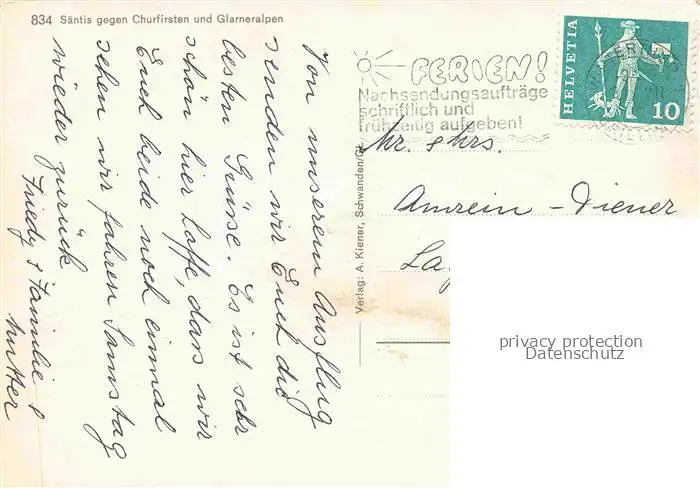 834 Säntis gegen Churfirsten und Glarneralpen
Von unserem Ausflug
senden wir Euch die
besten Grüsse. Es ist sehr
schön hier hoffe, dass wir
Euch beide noch einmal
sehen wir fahren Samstag
wieder zurück
Friedy & Familie &
Mutter
Verlag: A. Kiener, Schwanden/Gl.
FERIEN!
Nachsendungsaufträge
schriftlich und
frühzeitig aufgeben!
HELVETIA
10
Mr. & Mrs.
Amrein - Diener
privacy protection
Datenschutz